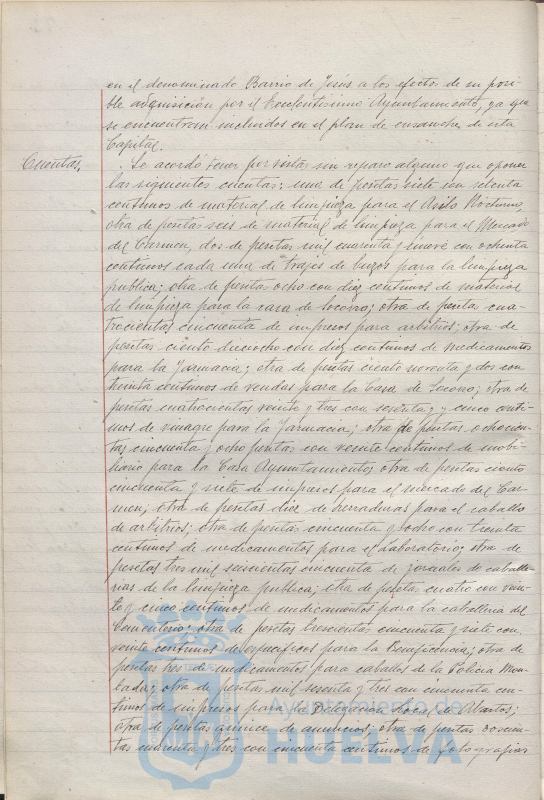 en el denominado Barrio de Jesús a los efectos de su posi-
ble adquisición por el Excelentísimo Ayuntamiento, ya que
se encuentran incluidos en el plan de ensanche de esta
Capital.
Cuentas.
Se acordó tener por vistas sin reparo alguno que oponer
las siguientes cuentas: una de pesetas siete con setenta
centimos de material de limpieza para el Asilo Nocturno,
otra de pesetas seis de material de limpieza para el Mercado
del Carmen, dos de pesetas mil cuarenta y nueve con ochenta
centimos cada una de trajes de buzos para la limpieza
publica; otra de pesetas ocho con diez centimos de material
de limpieza para la casa de socorro; otra de pesetas cua-
trocientas cincuenta de impresos para arbitrios; otra de
pesetas ciento dieciocho con diez centimos de medicamentos
para la Farmacia; otra de pesetas ciento noventa y dos con
treinta centimos de vendas para la Casa de Socorro; otra de
pesetas cuatrocientas veinte y tres con sesenta y cinco centi-
mos de vinagre para la Farmacia; otra de pesetas ochocien-
tas cincuenta y ocho pesetas con veinte centimos de mobi-
liario para la Casa Ayuntamiento; otra de pesetas ciento
cincuenta y siete de impresos para el mercado del Car-
men; otra de pesetas diez de herraduras para el caballo
de arbitrios; otra de pesetas cincuenta y ocho con treinta
centimos de medicamentos para el Laboratorio; otra de
pesetas tres mil seiscientas cincuenta de jornales de caballe-
rias de la limpieza publica; otra de pesetas cuatro con vein-
te y cinco centimos de medicamentos para la caballeria del
Cementerio; otra de pesetas trescientas cincuenta y siete con
veinte centimos de especificos para la Beneficencia; otra de
pesetas tres de medicamentos para caballos de la Policia Mon-
tada; otra de pesetas mil sesenta y tres con cincuenta cen-
timos de impresos para la Delegacion Local de Abastos;
otra de pesetas quince de anuncios; otra de pesetas doscien-
tas cuarenta y tres con cincuenta centimos de fotografias
Ayuntamiento de
HUELVA